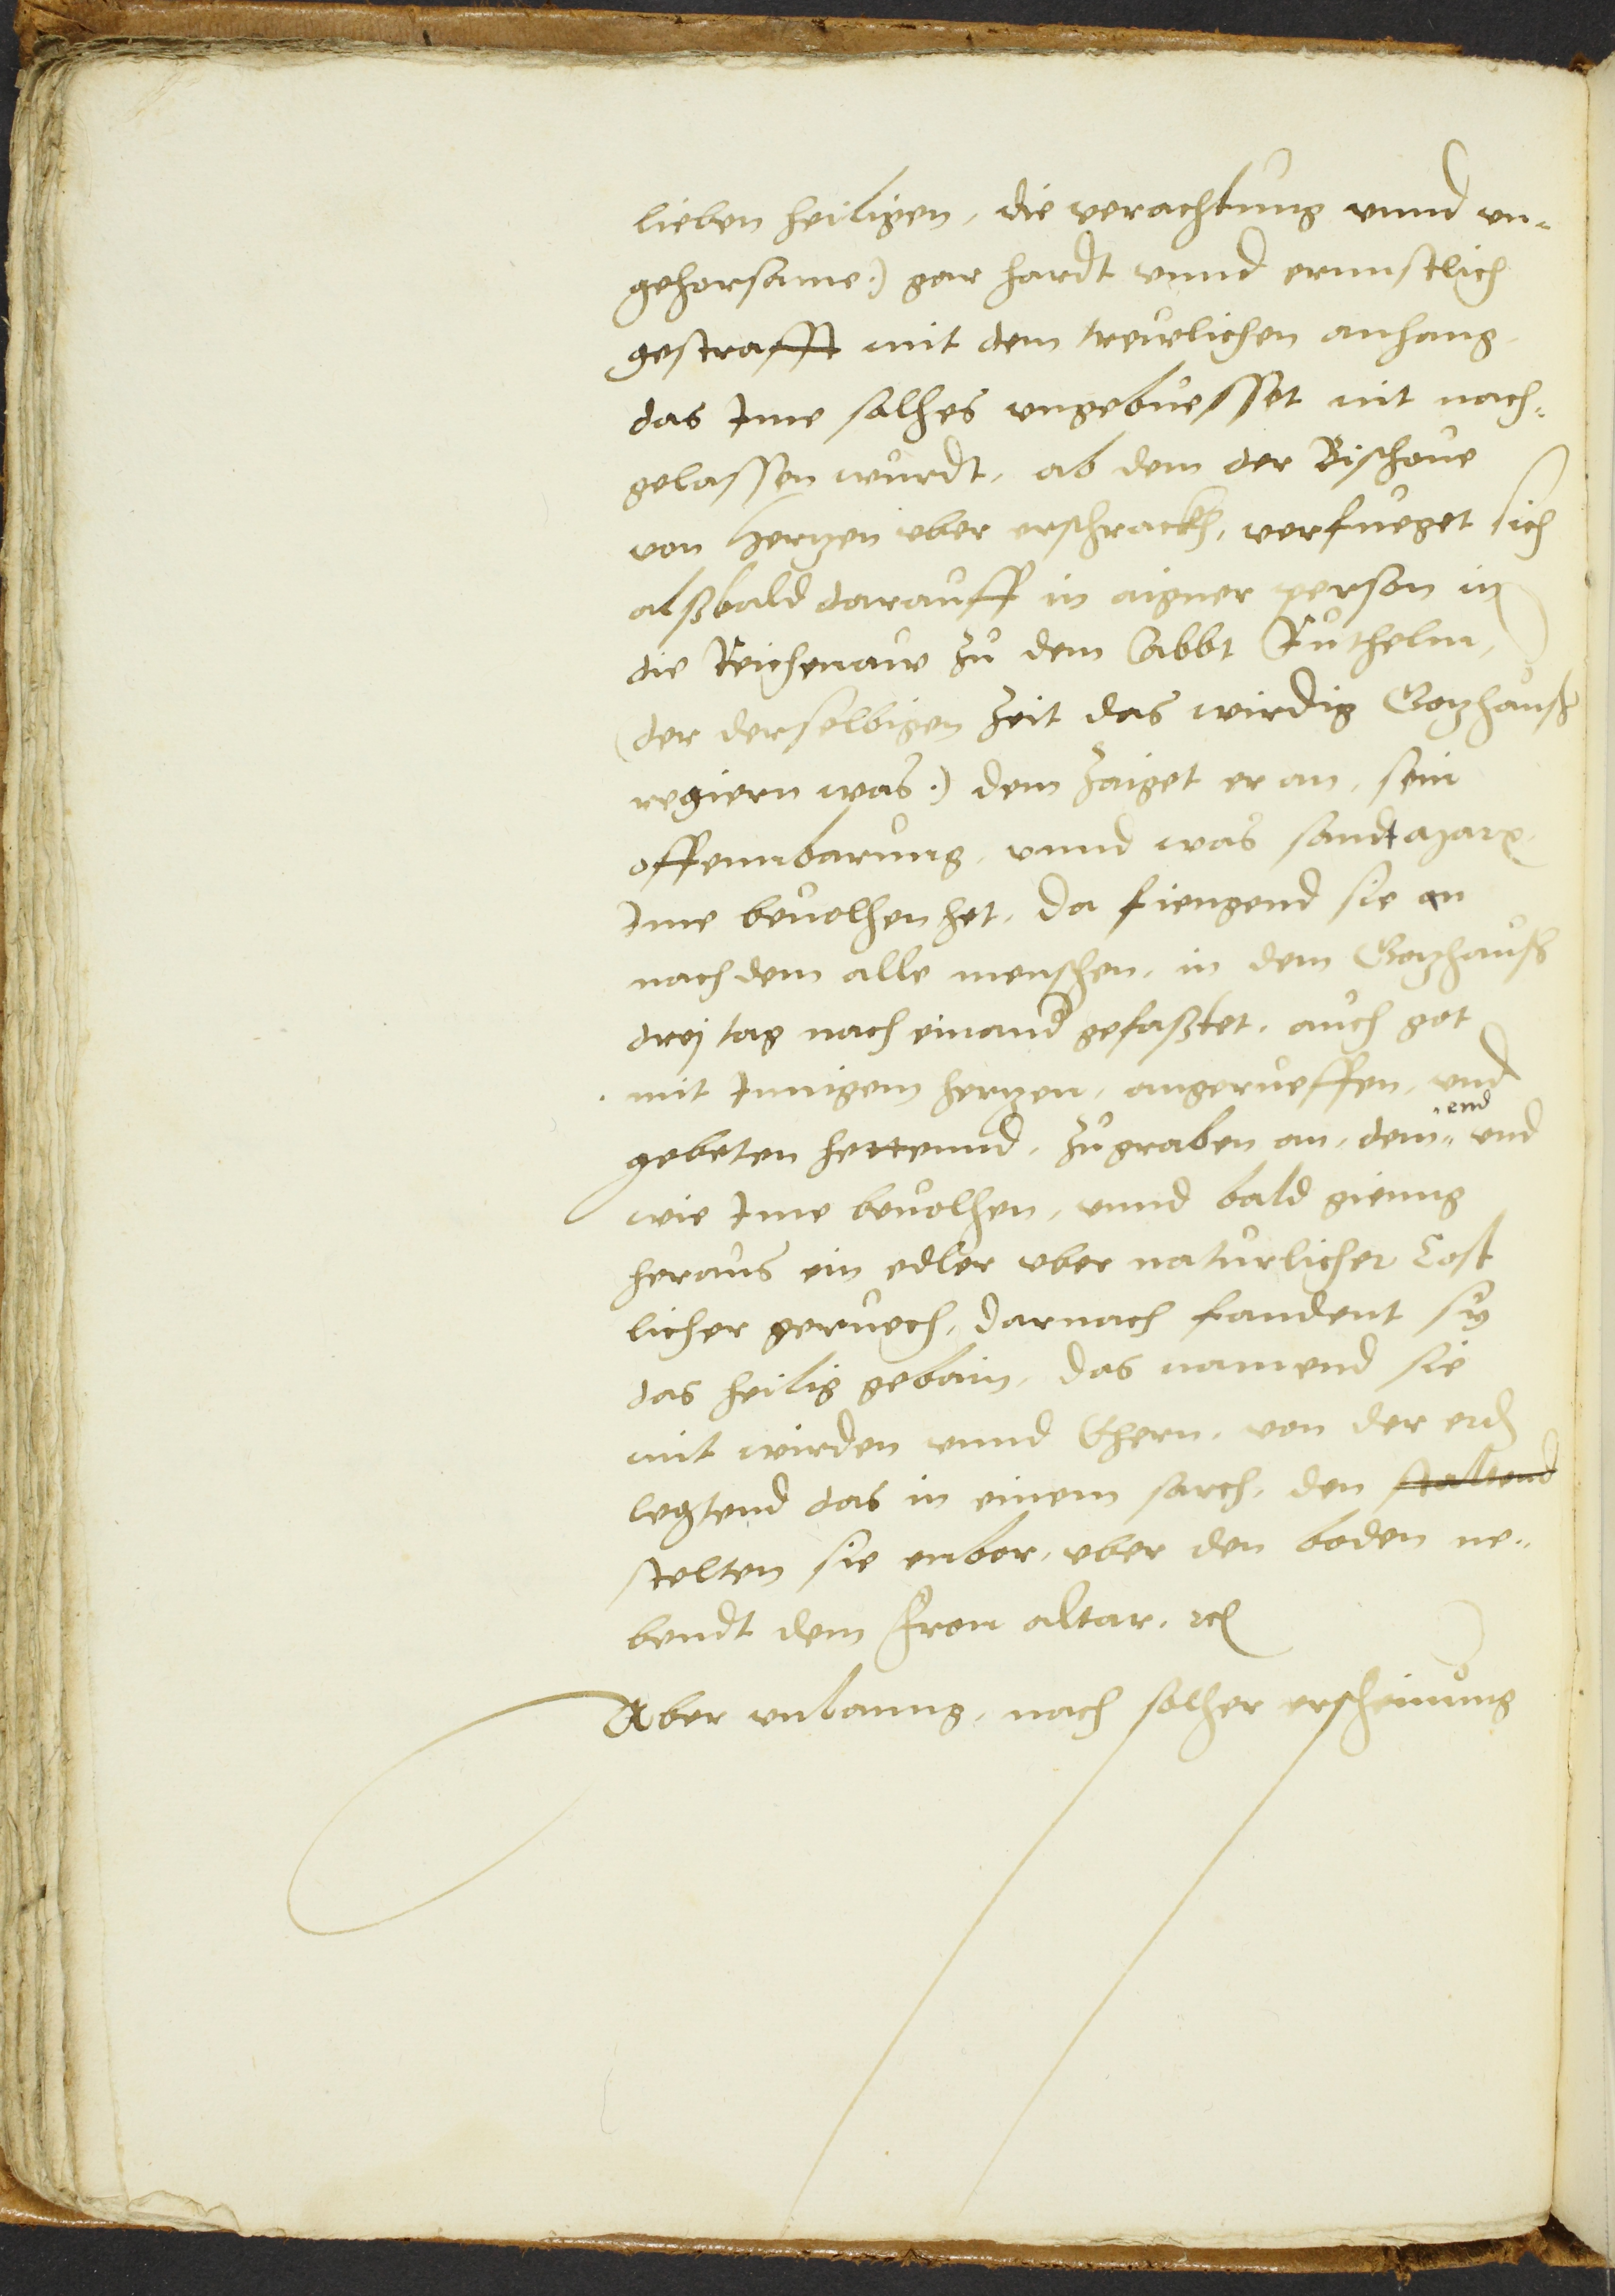 lieben heiligen, die verachtung vnnd vn-
gehorsame.) gar hardt vnnd ernnstlich
gestrafft mit dem trewlichen anhang,
das Ime solhes vngebuesset nit nach-
gelassen wurdt, ab dem der Bischoue
von Hertzen vber erschrackh, verfueget sich
alßbald darauff in aigner person in
die Reichenauw zů dem Abbt Růthelm,
(der derselbigen zeit das wirdig Gotzhauß
regiern was.) dem zaiget er an, sein
offennbarung, vnnd was sandt Marx
Ime beuolhen het, da fiengend sie an
nach dem alle menschen, in dem Gotzhauß
drej tag nach einand gefaßtet, auch got
mit Innigem hertzen, angerueffen, vnd
gebeten hettennd, zů graben an, dem end
wie Ime beuolhen, vnnd bald gienng
heraus ein edler vber naturlicher Cost
licher geruech, darnach fandent sy
das heilig gebain, das namend sie
mit wirden vnnd Ehern, von der erd
legtend das in einem sarch, den staltend
stelten sie enbor, vber den boden ne-
bendt dem Fron altar, etc
Aber vnlanng, nach solher erscheinung